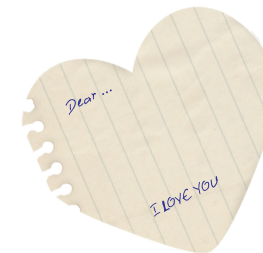 Dear ...
I LOVE YOU